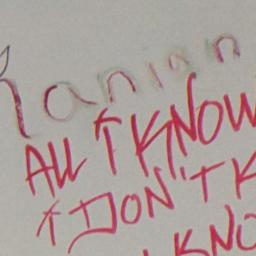 Ranian
ALL I KNOW
I DON'T K
I KNO